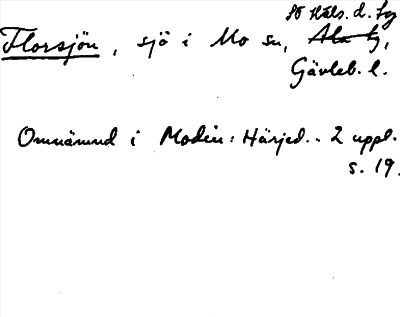 SÖ Häls. d. tg
Florsjön, sjö i Mo sn, Ala tg,
Gävleb. l.
Omnämnd i Modin: Härjed.. 2 uppl.
s. 19.